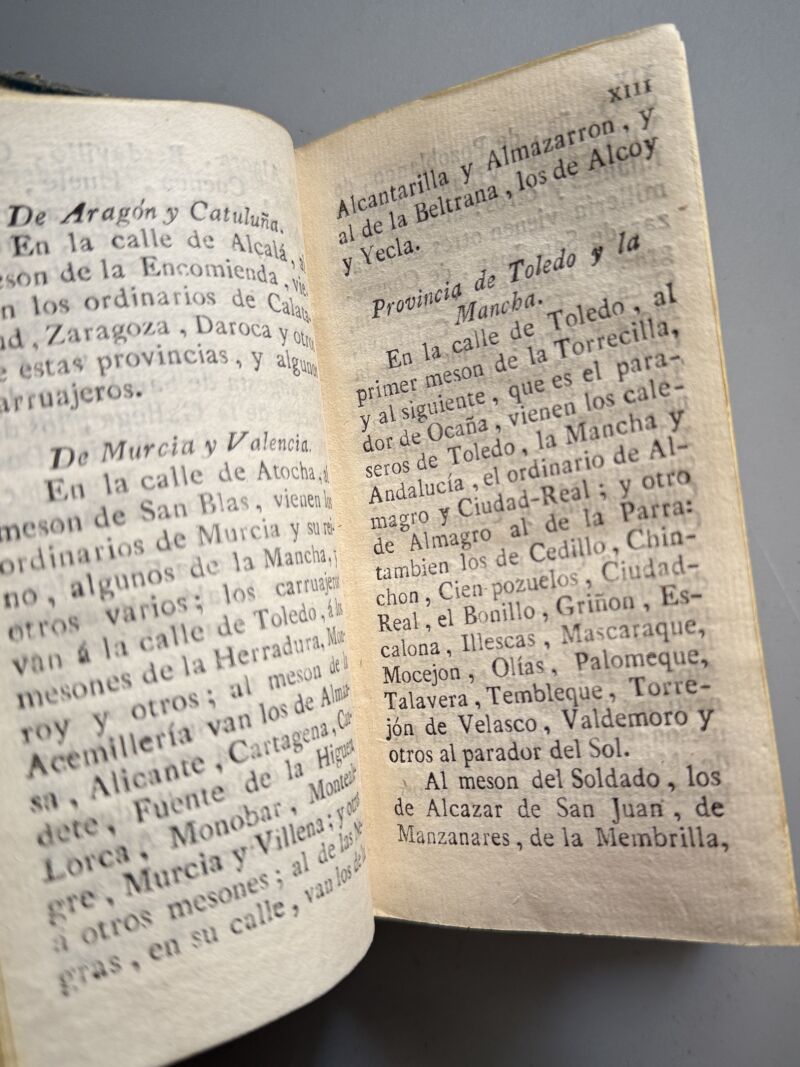 De Aragón y Catuluña.
En la calle de Alcalá, al
eson de la Encomienda, vie-
n los ordinarios de Calata-
ud, Zaragoza, Daroca y otros
e estas provincias, y algunos
arruajeros.
De Murcia y Valencia.
En la calle de Atocha, al
meson de San Blas, vienen los
ordinarios de Murcia y su rei-
no, algunos de la Mancha, y
otros varios; los carruajeros
van á la calle de Toledo, á los
mesones de la Herradura, Mon-
roy y otros; al meson de la
Acemillería van los de Alman-
sa, Alicante, Cartagena, Cau-
dete, Fuente de la Higuera,
Lorca, Monobar, Monteale-
gre, Murcia y Villena; y otros
á otros mesones; al de las Ne-
gras, en su calle, van los de la
XIII
Alcantarilla y Almazarron, y
al de la Beltrana, los de Alcoy
y Yecla.
Provincia de Toledo y la
Mancha.
En la calle de Toledo, al
primer meson de la Torrecilla,
y al siguiente, que es el para-
dor de Ocaña, vienen los cale-
seros de Toledo, la Mancha y
Andalucía, el ordinario de Al-
magro y Ciudad-Real; y otro
de Almagro al de la Parra:
tambien los de Cedillo, Chin-
chon, Cien-pozuelos, Ciudad-
Real, el Bonillo, Griñon, Es-
calona, Illescas, Mascaraque,
Mocejon, Olías, Palomeque,
Talavera, Tembleque, Torre-
jón de Velasco, Valdemoro y
otros al parador del Sol.
Al meson del Soldado, los
de Alcazar de San Juan, de
Manzanares, de la Membrilla,